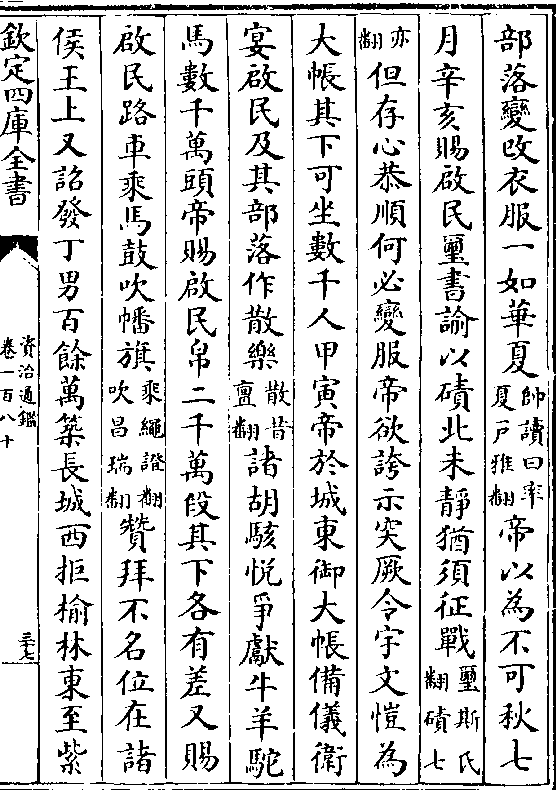 部落變改衣服一如華夏帥讀曰率夏戸雅翻帝以為不可秋七
月辛亥賜啟民璽書諭以磧北未靜猶須征戰璽斯氏翻磧七
亦翻但存心恭順何必變服帝欲誇示突厥令宇文愷為
大帳其下可坐數千人甲寅帝於城東御大帳備儀衛
宴啟民及其部落作散樂散昔亶翻諸胡駭悅爭獻牛羊駝
馬數千萬頭帝賜啟民帛二千萬段其下各有差又賜
啟民路車乘馬鼓吹幡旗乘繩證翻吹昌瑞翻贊拜不名位在諸
侯王上又詔發丁男百餘萬築長城西拒榆林東至紫
欽定四庫全書
資治通鑑
卷一百八十
三七